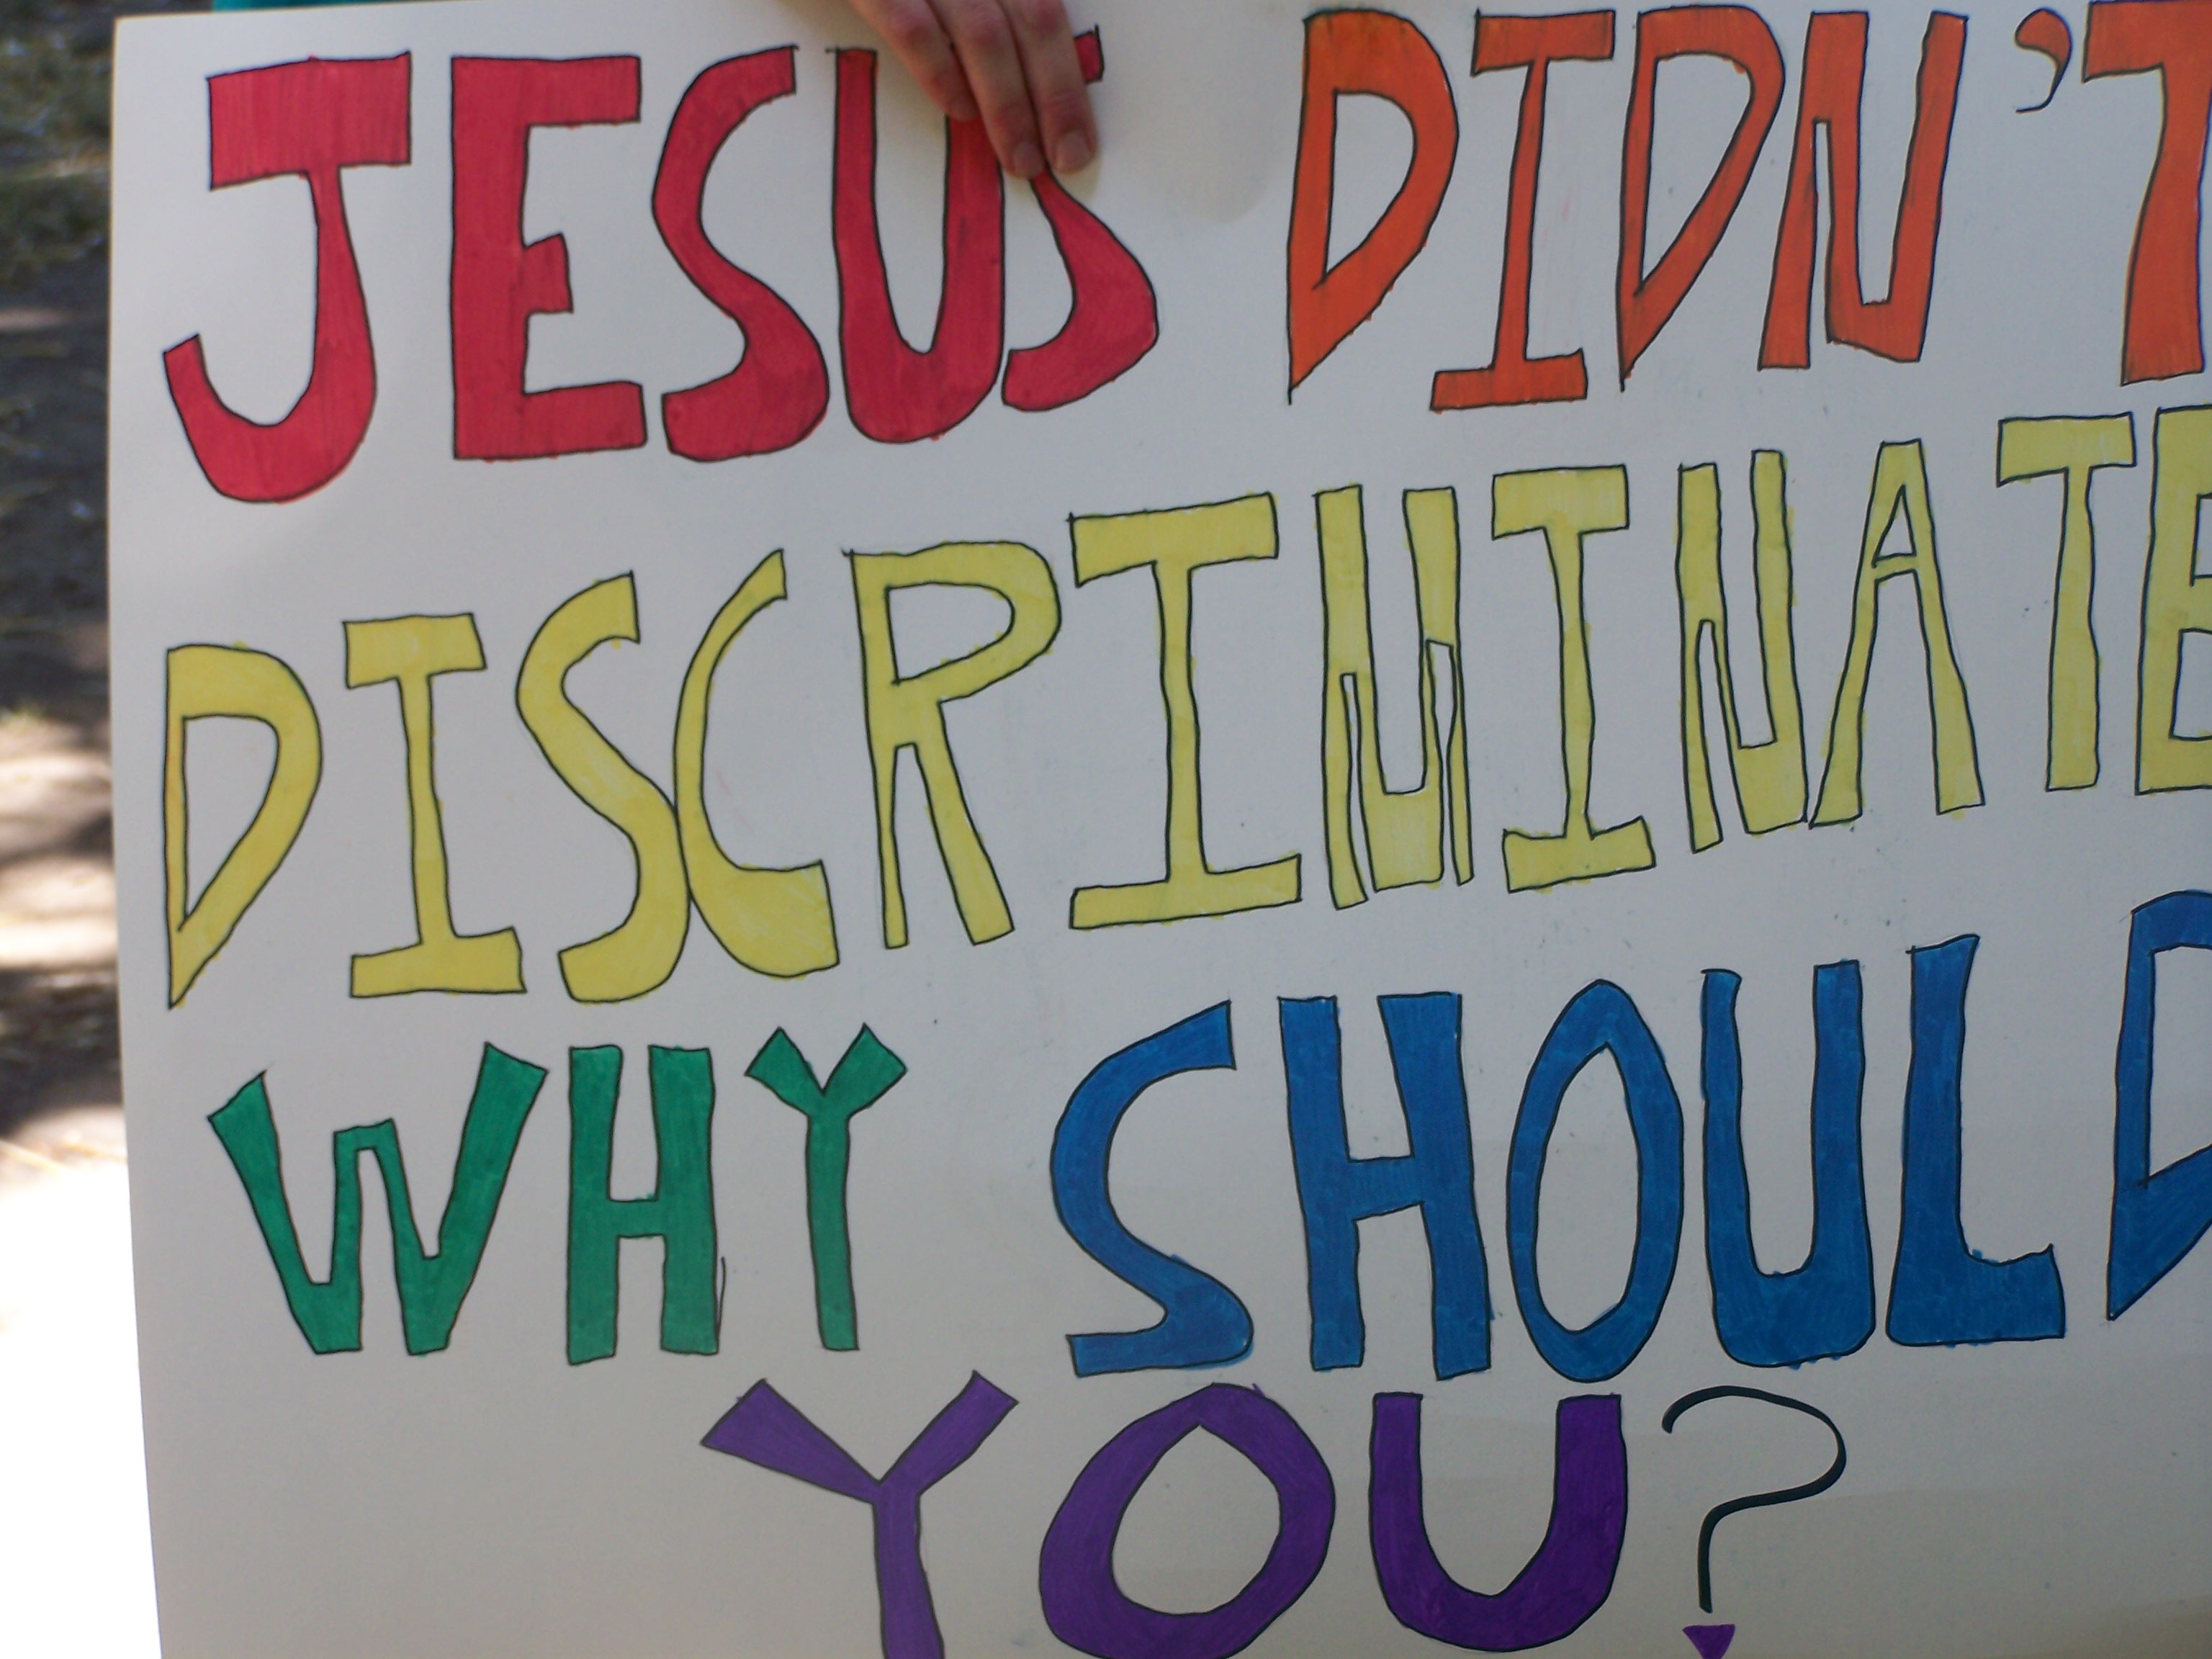 JESUS DIDN'T
DISCRIMINATE
WHY SHOULD
YOU?